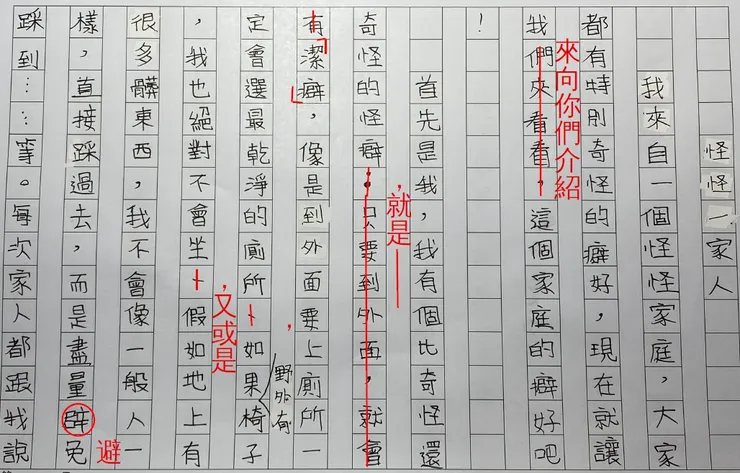 怪怪一家人
我來自一個怪怪家庭，大家
都有特別奇怪的癖好，現在就讓
我們來看看，這個家庭的癖好吧
來向你們介紹
！
首先是我，我有個比奇怪還
，就是——
奇怪的怪癖：只要到外面，就會
有潔癖，像是到外面要上廁所一
「」
，
定會選最乾淨的廁所，如果椅子
野外有
，我也絕對不會坐，假如地上有
，又或是
很多髒東西，我不會像一般人一
樣，直接踩過去，而是盡量辟免
避
踩到……等。每次家人都跟我說